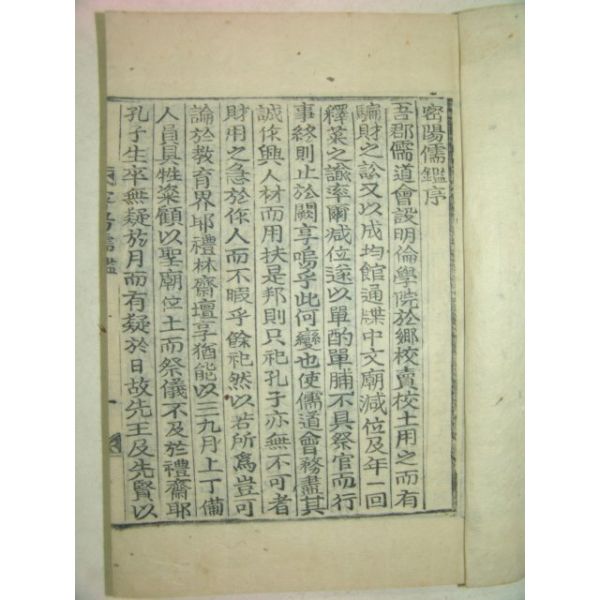 密陽儒鑑序
吾郡儒道會設明倫學院於鄕校賣校土用之而有
騙財之訟又以成均館通牒中文廟减位及年一回
釋菜之諭率爾减位遂以單酌單脯不具祭官而行
事終則止於闕享嗚乎此何變也使儒道會務盡其
誠作興人材而用扶是邦則只祀孔子亦無不可者
財用之急於作人而不暇乎餘祀然以若所爲豈可
論於敎育界耶禮林齋壇享猶能以三九月上丁備
人員具牲粢顧以聖廟位土而祭儀不及於禮齋耶
孔子生卒無疑於月而有疑於日故先王及先賢以